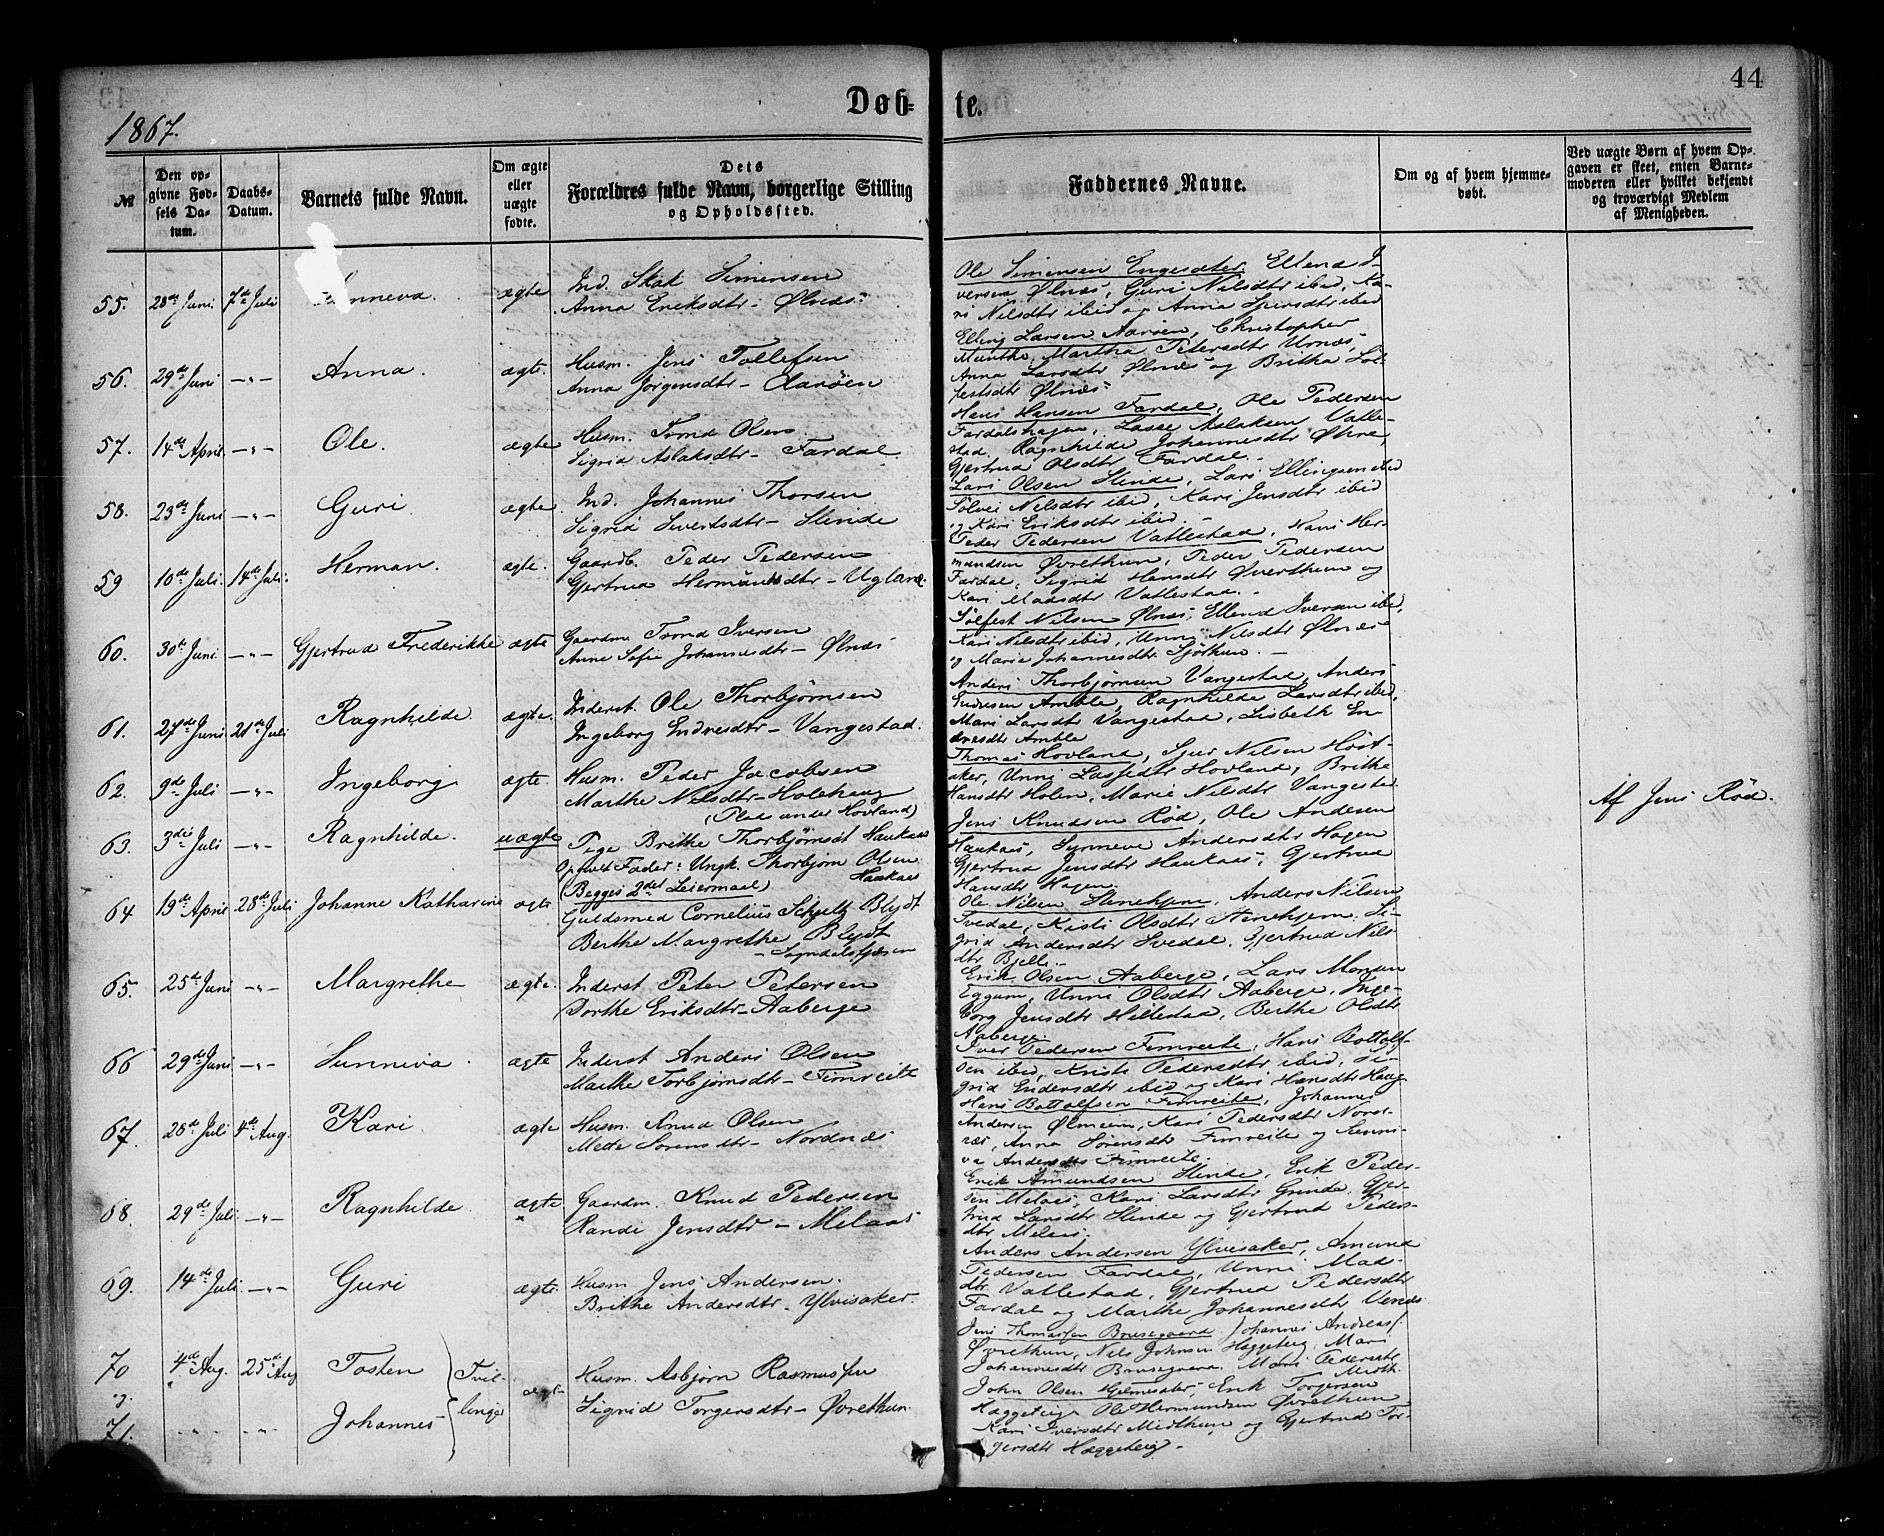 44
Døb- te.
1867.
№
Den op-
givne Fød-
sels Da-
tum.
Daabs-
Datum.
Barnets fulde Navn.
Om ægte
eller
uægte
fødte.
Dets
Forældres fulde Navn, borgerlige Stilling
og Opholdssted.
Faddernes Navne.
Om og af hvem hjemme-
døbt.
Ved uægte Børn af hvem Op-
gaven er skeet, enten Barne-
moderen eller hvilket bekjendt
og troværdigt Medlem
af Menigheden.
55. 28de Juni 7de Juli ægte Ind. Skak Simensen
Anna Eriksdtr - Ølnæs
Ole Simensen Engesæter, Ellend I-
versen Ølnæs, Guri Nilsdtr ibid, Ka-
ri Nilsdtr ibid og Anna Sjursdtr ibid
56. 29de Juni -"- Anna. ægte. Husm. Jens Tollefsen
Anna Jørgensdtr - Aarøen
Elling Larsen Aarøen, Christopher
Munthe, Martha Petersdtr Urnæs,
Anna Larsdtr Ølnæs og Britha Søl-
festsdtr Ølnæs
57. 14de April -"- Ole. ægte Husm. Tomd Olsen
Sigrid Aslaksdtr - Fardal
Hans Hansen Fardal, Ole Pedersen
Fardalshagen, Lasse Aslaksen Vatle-
stad, Ragnhilde Johannesdtr Øhre,
Gjertrud Olsdtr Fardal.
58. 23de Juni -"- Guri. ægte. Ind. Johannes Thorsen
Sigrid Sivertsdtr - Slinde
Lars Olsen Slinde, Lars Ellingsen ibid
Sølvei Nilsdtr ibid, Kari Jensdtr ibid
og Kari Eriksdtr ibid.
59 10de Juli. 14de Juli. Herman. ægte. Gaardb. Peder Pedersen
Gjertrud Hermundsdtr - Ugland.
Peder Pedersen Vatlestad, Hans Her-
mundsen Øvrethun, Peder Pedersen
Fardal, Sigrid Hansdtr Øvrethun og
Kari Madsdtr Vatlestad.
60. 30te Juni. -"- Gjertrud Frederikke ægte Gaardm Tomd Iversen
Anne Sofie Johannesdtr - Ølnæs
Sølfest Nilsen Ølnæs, Ellend Iversen ibid,
Kari Nilsdtr ibid, Unni Nilsdtr Ølnæs
og Marie Johannesdtr Sjøthun.
61. 27de Juni 21de Juli Ragnhilde. ægte. Inderst. Ole Thorbjørnsen
Ingeborg Endresdtr - Vangestad.
Anders Thorbjørnsen Vangestad, Anders
Endresen Amble, Ragnhilde Larsdtr ibid,
Mari Larsdtr Vangestad, Lisbeth En-
dresdtr Amble
62. 9de Juli -"- Ingeborg ægte. Husm. Peder Jacobsen
Marthe Nilsdtr - Holehaug
(Plads under Hovland)
Thomas Hovland, Sjur Nilsen Høst-
aker, Unni Lassesdtr Hovland, Brithe
Hansdtr Holen, Marie Nilsdtr Vangestad
63. 3die Juli -"- Ragnhilde. uægte Pige Brithe Thorbjørnsdt Haukaas
Opgivet Fader: Ungk. Thorbjørn Olsen
Haukaas
(Begges 2det Leiermaal)
Jens Knudsen Rød, Ole Andersen
Haukaas, Synneve Andersdtr Hagen
Gjertrud Jensdtr Haukaas, Gjertrud
Hansdtr Hagen.
Af Jens Rød.
64 19de April 28de Juli Johanne Katharine ægte Guldsmed Cornelius Schjeltz Blydt
Berthe Margrethe Blydt
- Sogndalsfjæren
Ole Nilsen Stenehjem, Anders Nilsen
Svedal, Kristi Olsdtr Stenehjem. Si-
grid Andersdtr Svedal. Gjertrud Nils-
dtr Bjelli.
65. 25de Juni -"- Margrethe ægte. Inderst Peter Petersen
Dorthe Eriksdtr - Aaberge
Erik Olsen Aaberge, Lars Monsen
Eggum, Unni Olsdtr Aaberge, Inge-
borg Jensdtr Hillestad, Berthe Olsdtr
Aaberge
66 29de Juni -"- Sunneva. ægte Inderst Anders Olsen
Marthe Torbjørnsdtr - Fimreite
Iver Pedersen Fimreite, Hans Bottolf-
sen ibid, Kristi Pedersdtr ibid, Si-
grid Endersdtr ibid og Kari Hansdtr Haug
67. 4de Aug. Kari. ægte Husm. Knud Olsen
Mette Sørensdtr - Nordnæs
Hans Bottolfsen Fimreite, Johannes
Andersen Ølmeim, Kari Pedersdtr Nord-
næs, Anna Sørensdtr Fimreite og Sunni-
va Andersdtr Fimreite.
68. 29de Juli. -"- Ragnhilde. ægte Gaardm. Knud Pedersen
Randi Jensdtr - Melaas
Erik Amundsen Slinde, Erik Peder-
sen Melaas, Kari Larsdtr Grinde, Gjer-
trud Larsdtr Slinde og Gjertrud Peders-
dtr Melaas.
69. 14de Juli. -"- Guri ægte. Husm Jens Andersen.
Brithe Andersdtr - Ylvisaker.
Anders Andersen Ylvisaker, Amund
Pedersen Fardal, Unni Mads-
dtr Vatlestad, Gjertrud Pedersdtr
Fardal og Marthe Johannesdtr Venæs
70 4de Aug. 25de Aug Tosten Tvil-
og
71. " " " -"- Johannes linger
ægte Husm. Asbjørn Rasmussen
Sigrid Torgersdtr - Øvrethun.
Jens Thomassen Brusegaard Johannes Andreass.
Øvrethun, Nils Johnsen Hæggeberg. Mari
Johannesdtr Brusegaard. Mari Pedersdtr
Midth.
John Olsen Erik Torgersen
Ole Hermundsen Øvrethun
Kari Iversdtr Midthun og Gjertrud Tor-
gersdtr Hæggeberg -